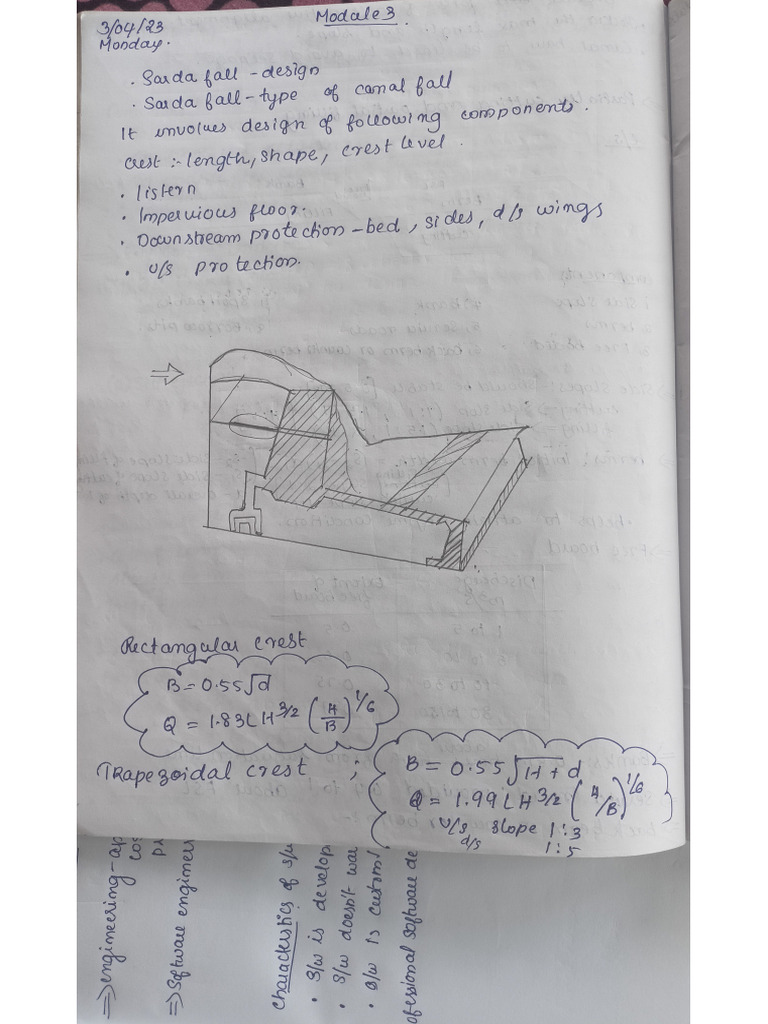 3/04/23
Monday.
Module 3.
. Sarda fall - design
. Sarda fall - type of canal fall
It involves design of following components.
crest :- length, shape, crest level.
. listern
. Impervious floor.
. Downstream protection - bed, sides, d/s wings
. u/s protection.
Rectangular crest
B = 0.55√d
Q = 1.83LH^3/2 (H/B)^1/6
Trapezoidal crest ;
B = 0.55√H+d
Q = 1.99LH^3/2 (H/B)^1/6
u/s slope 1:3
d/s 1:5
⇒ engineering-ap
cos
⇒ Software engineer
Characteristics of s/w
• S/w is develop
• s/w doesn't wea
• s/w is custom
ofessional software de